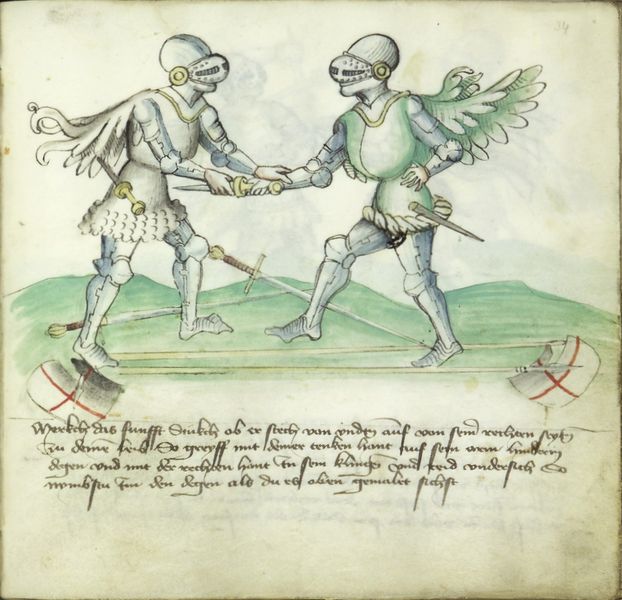 34
Merckch das funfft Stukch ob er stech von vndtn auff von seinr rechten seytn
zu deine leib So greyff mit deiner tenken hant auf sein arm hinderm
degen vnd mit der rechten hant in sein klingen vnd reid vndersich So
nymbstu im den degen als du es oben gemalet sichst